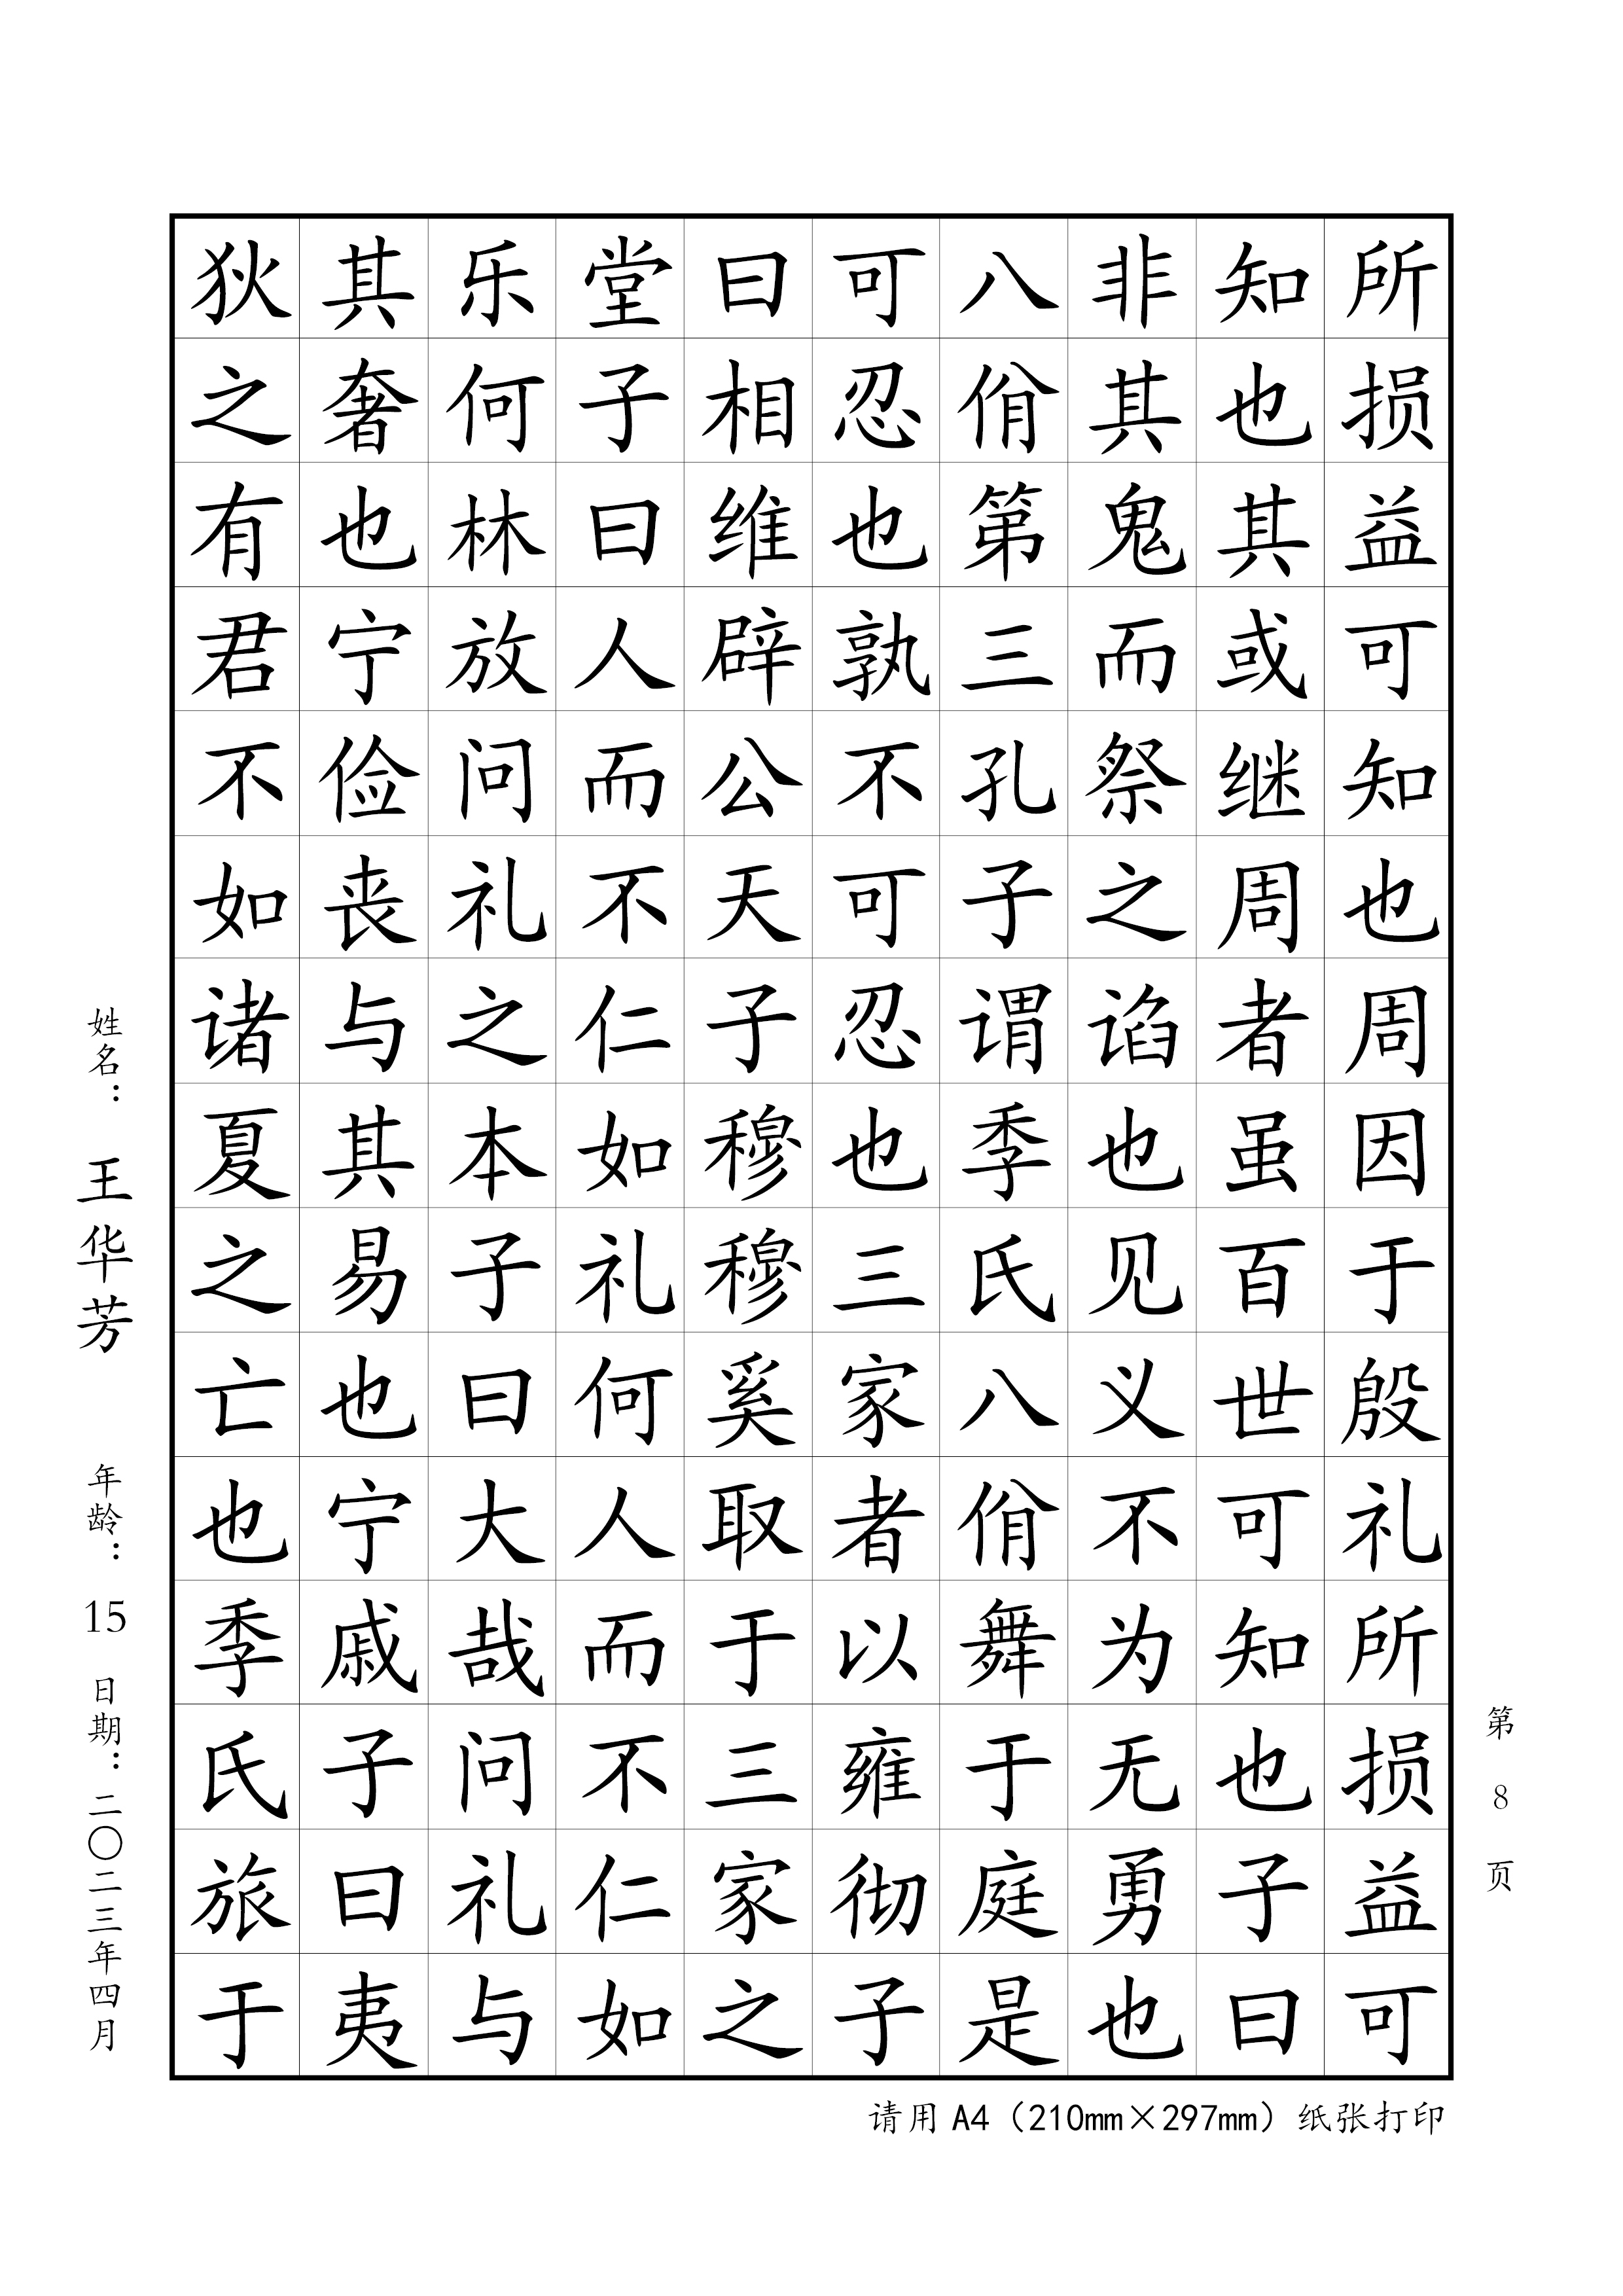 所损益可知也周因于殷礼所损益可
知也其或继周者虽百世可知也子曰
非其鬼而祭之谄也见义不为无勇也
八佾第三孔子谓季氏八佾舞于庭是
可忍也孰不可忍也三家者以雍彻子
曰相维辟公天子穆穆奚取于三家之
堂子曰人而不仁如礼何人而不仁如
乐何林放问礼之本子曰大哉问礼与
其奢也宁俭丧与其易也宁戚子曰夷
狄之有君不如诸夏之亡也季氏旅于
姓名：王华芳 年龄：15 日期：二〇二三年四月
第 8 页
请用 A4（210mm×297mm）纸张打印